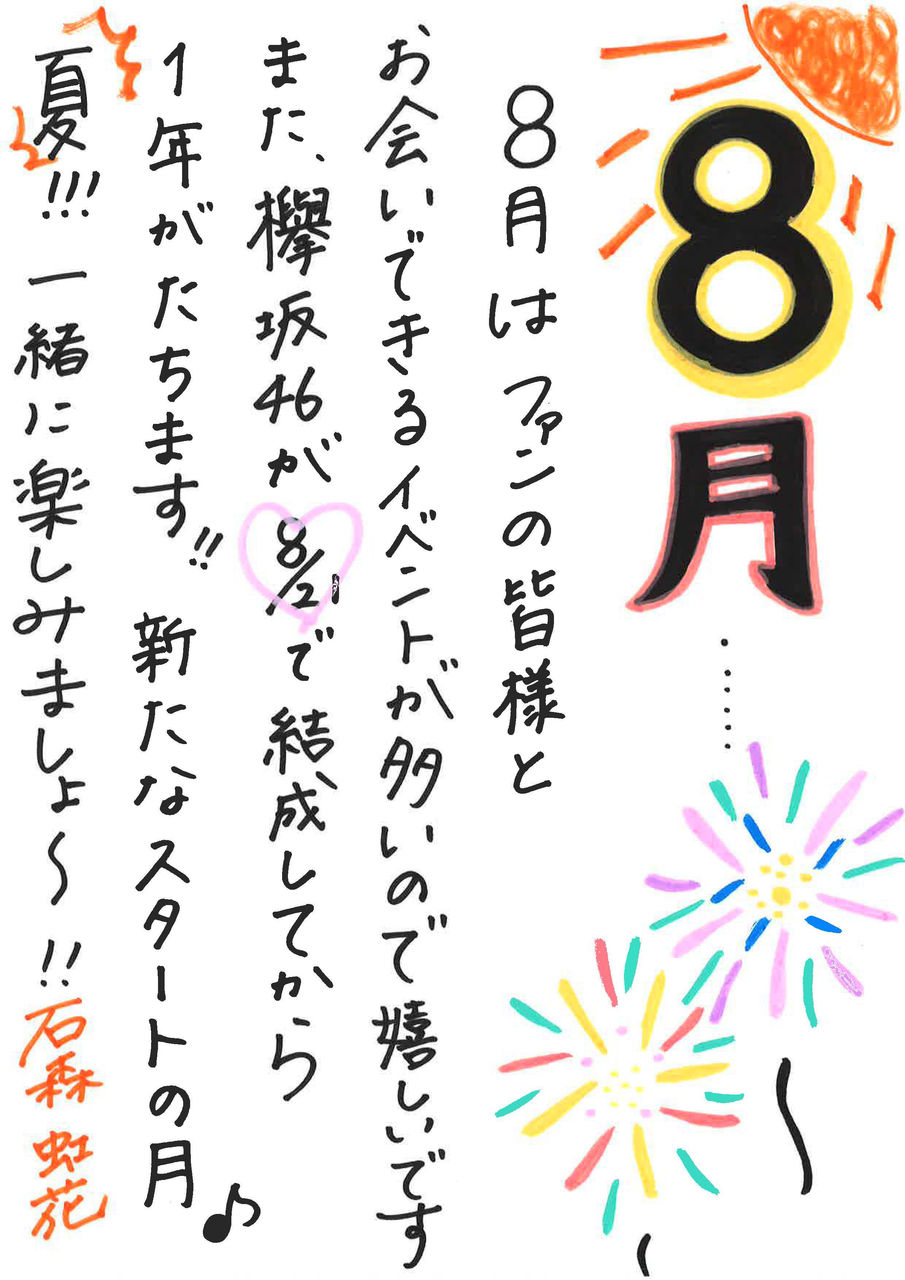 8月……
8月はファンの皆様と
お会いできるイベントが多いので嬉しいです
また、欅坂46が8/21で結成してから
1年がたちます!! 新たなスタートの月♪
夏!!! 一緒に楽しみましょ〜!! 石森 虹花